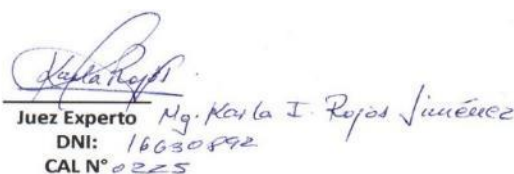 Karla Rojas
Juez Experto Mg. Karla I. Rojas Jiménez
DNI: 16630892
CAL N° 0225